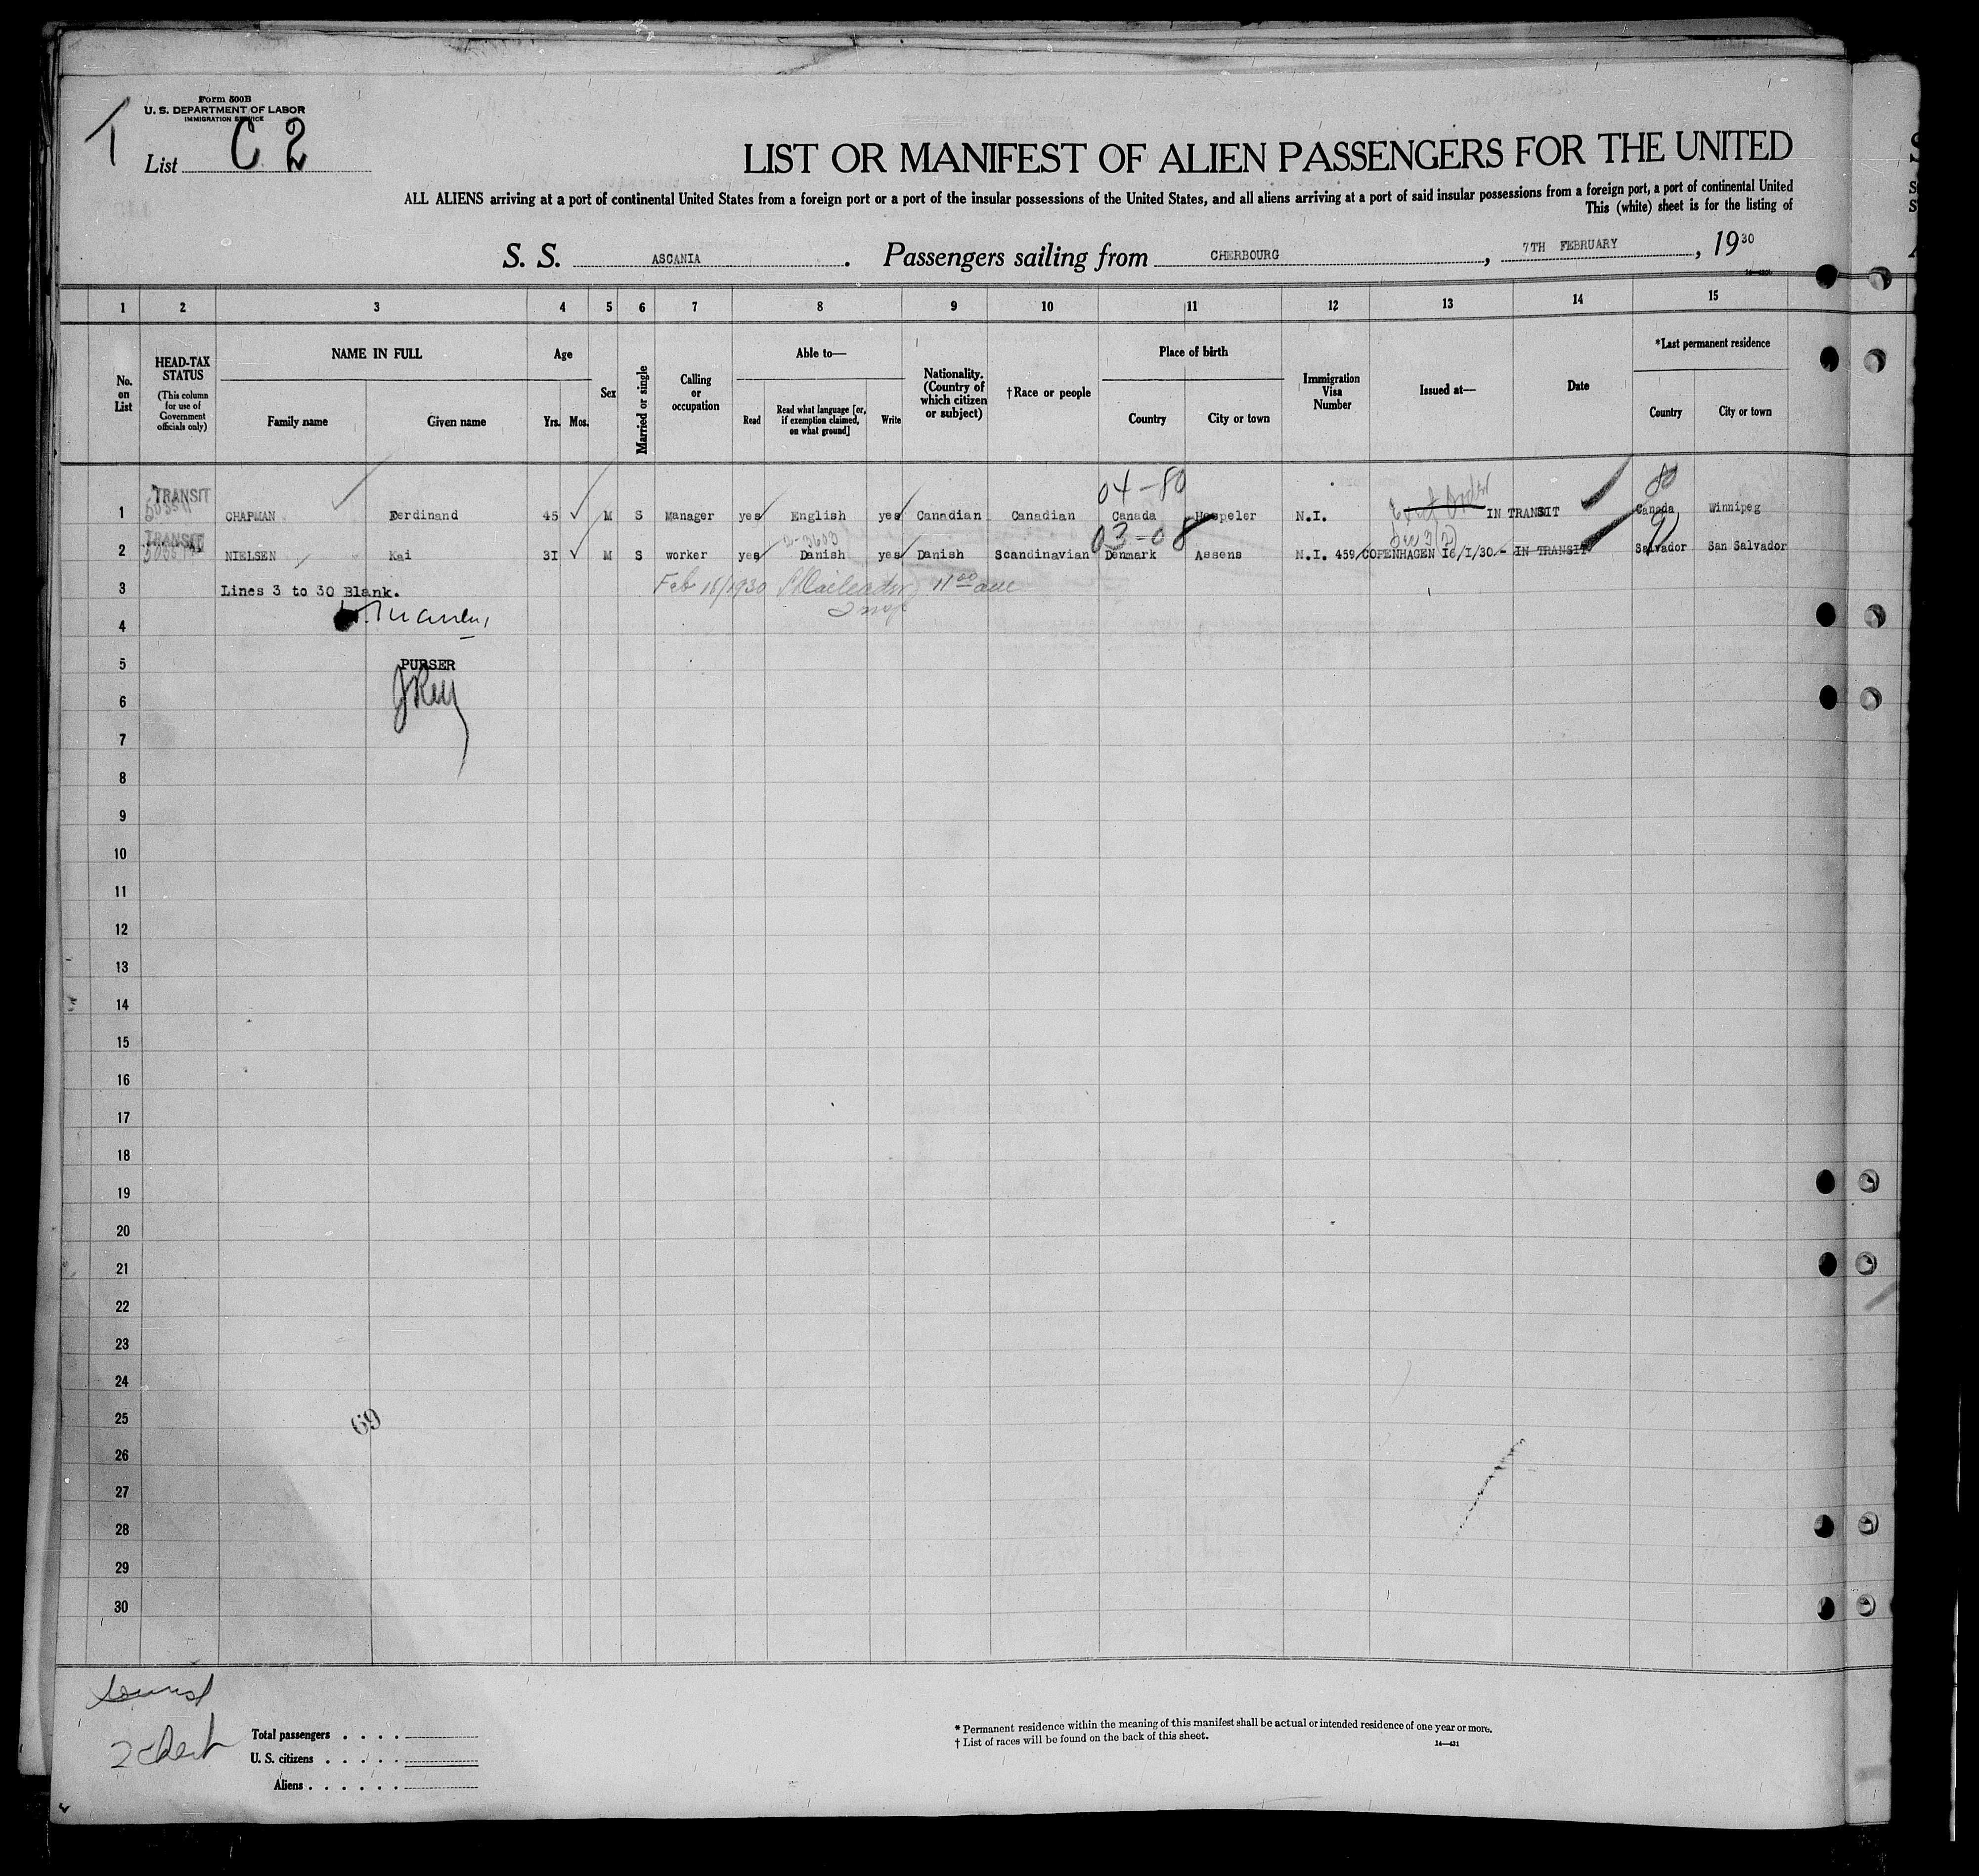 Form 500B
U. S. DEPARTMENT OF LABOR
IMMIGRATION SERVICE
List C 2
LIST OR MANIFEST OF ALIEN PASSENGERS FOR THE UNITED
ALL ALIENS arriving at a port of continental United States from a foreign port or a port of the insular possessions of the United States, and all aliens arriving at a port of said insular possessions from a foreign port, a port of continental United
This (white) sheet is for the listing of
S. S. ASCANIA. Passengers sailing from CHERBOURG, 7TH FEBRUARY, 1930
1 2 3 4 5 6 7 8 9 10 11 12 13 14 15
No. on List
HEAD-TAX STATUS
(This column for use of Government officials only)
NAME IN FULL
Family name
Given name
Age
Yrs. Mos.
Sex
Married or single
Calling or occupation
Able to—
Read
Read what language [or, if exemption claimed, on what ground]
Write
Nationality. (Country of which citizen or subject)
†Race or people
Place of birth
Country
City or town
Immigration Visa Number
Issued at—
Date
*Last permanent residence
Country
City or town
04-80
80
TRANSIT
1 CHAPMAN Ferdinand 45 M S Manager yes English yes Canadian Canadian Canada Hespeler N.I. IN TRANSIT Canada Winnipeg
03-08
TRANSIT
2 NIELSEN Kai 31 M S worker yes Danish yes Danish Scandinavian Denmark Assens N.I. 459/COPENHAGEN 16/1/30- IN TRANSIT Salvador San Salvador
3 Lines 3 to 30 Blank. Feb 18/1930
4
5 PURSER
6
7
8
9
10
11
12
13
14
15
16
17
18
19
20
21
22
23
24
25
69
26
27
28
29
30
Total passengers
U. S. citizens
Aliens
* Permanent residence within the meaning of this manifest shall be actual or intended residence of one year or more.
† List of races will be found on the back of this sheet.
14—421